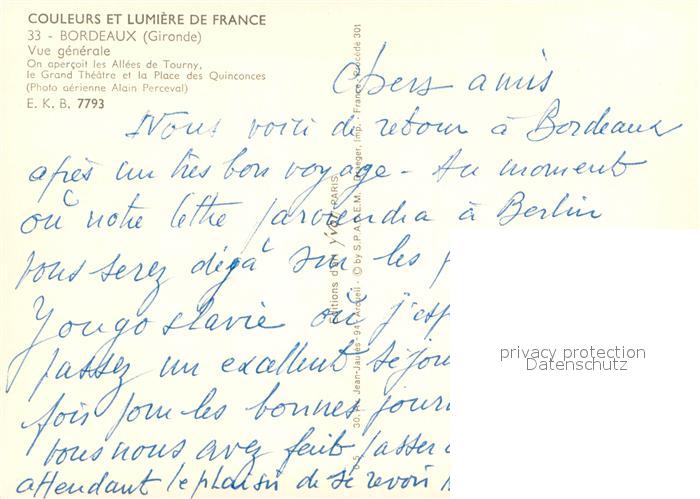 COULEURS ET LUMIÈRE DE FRANCE
33 - BORDEAUX (Gironde)
Vue générale
On aperçoit les Allées de Tourny,
le Grand Théâtre et la Place des Quinconces
(Photo aérienne Alain Perceval)
E. K. B. 7793
Chers amis
Nous voici de retour à Bordeaux
après un très bon voyage - Au moment
où notre lettre parviendra à Berlin
vous serez déjà sur les
Yougoslavie où j'esp
passez un excellent séjou
fois pour les bonnes journ
vous nous avez fait passer
attendant le plaisir de se revoir
Editions d'art YVON PARIS
30, Jean-Jaurès - 94 - Arcueil - © by S.P.A.D.E.M. Draeger, Imp. - France, Procédé 301
privacy protection
Datenschutz